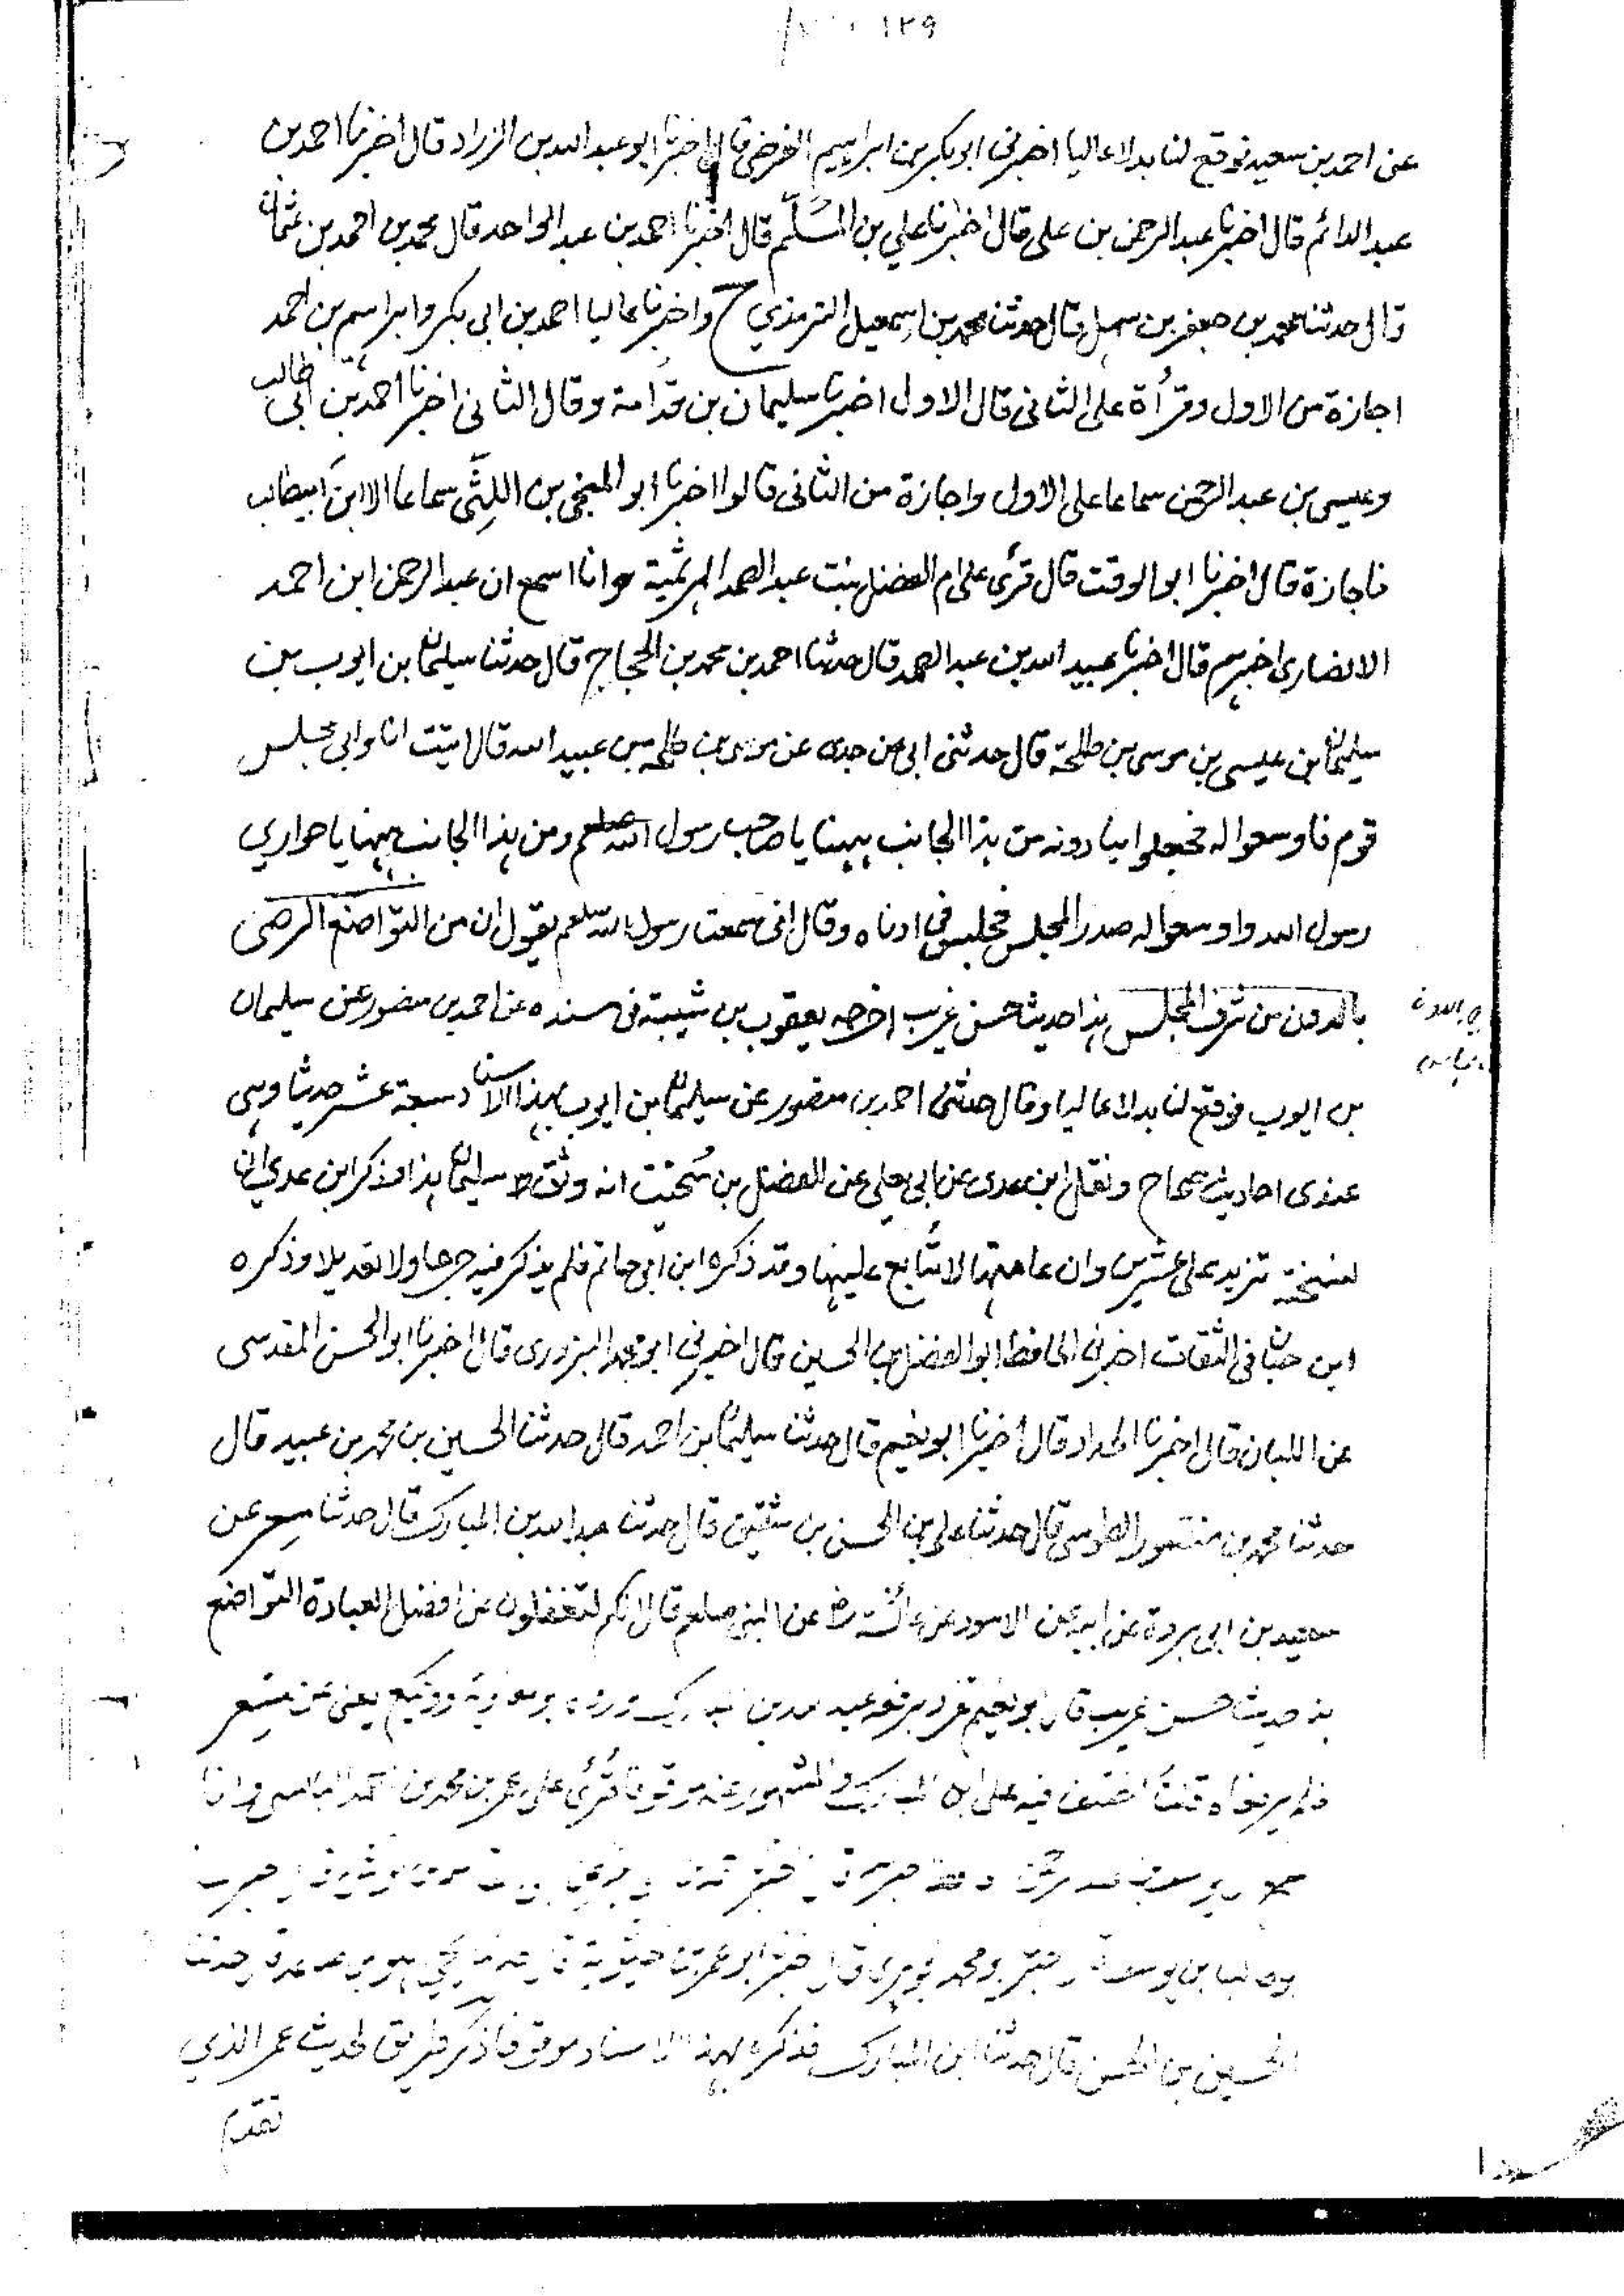 ١٢٩
عن احمد بن سعيد فوقع لنا بدلا عاليا اخبرني ابو بكر بن ابراهيم الفرضي قال اخبرنا ابو عبد الله بن الزراد قال اخبرنا احمد بن
عبد الدائم قال اخبرنا عبد الرحمن بن علي قال اخبرنا علي بن المسلّم قال اخبرنا احمد بن عبد الواحد قال محمد بن احمد بن عثمان
قال حدثنا محمد بن جعفر بن سهل قال حدثنا محمد بن اسمعيل الترمذي ح واخبرنا عاليا احمد بن ابي بكر وابراهيم بن احمد
اجازة من الاول وقرأة على الثاني قال الاول اخبرنا سليمان بن قدامة وقال الثاني اخبرنا احمد بن ابي طالب
وعيسى بن عبد الرحمن سماعا على الاول واجازة من الثاني قالوا اخبرنا ابو المنجي بن اللتّي سماعا الا ابن ابيطالب
فاجازة قال اخبرنا ابو الوقت قال قرئ على ام الفضل بنت عبد الصمد الهرثمية وانا اسمع ان عبد الرحمن ابن احمد
الانصاري اخبرهم قال اخبرنا عبيد الله بن عبد الصمد قال حدثنا احمد بن محمد بن الحجاج قال حدثنا سليمان بن ايوب بن
سليمان بن عيسى بن موسى بن طلحة قال حدثني ابي عن جدي عن موسى بن طلحة بن عبيد الله قال اتيت انا وابي مجلس
قوم فاوسعوا له فجعلوا ينادونه من هذا الجانب ههنا يا صاحب رسول الله صلعم ومن هذا الجانب ههنا يا حواري
رسول الله واوسعوا له صدر المجلس فجلس في ادناه وقال اني سمعت رسول الله صلعم يقول ان من التواضع الرضى
بالدون من شرف المجلس هذا حديث حسن غريب اخرجه يعقوب بن شيبة في مسنده عن احمد بن منصور عن سليمان
بن ايوب فوقع لنا بدلا عاليا وقال حدثني احمد بن منصور عن سليمان بن ايوب بهذا الاسناد سبعة عشر حديثا وهي
عندى احاديث صحاح ونقل ابن عدى عن ابي يعلي عن الفضل بن سُخيت انه وثق سليمان هذا وذكر ابن عدي ان
نسخته تزيد على عشرين وان عامتها لا يتابع عليها وقد ذكره ابن ابي حاتم فلم يذكر فيه جرحا ولا تعديلا وذكره
ابن حبان في الثقات اخبرني الحافظ ابو الفضل بن الحسين قال اخبرني ابو محمد البزوري قال اخبرنا ابو الحسن المقدسي
عن اللبان قال اخبرنا الحداد قال اخبرنا ابو نعيم قال حدثنا سليمان بن احمد قال حدثنا الحسين بن محمد بن عبيد قال
حدثنا محمد بن منصور الطوسي قال حدثنا علي بن الحسن بن شقيق قال حدثنا عبد الله بن المبارك قال حدثنا مسعر عن
سعيد بن ابي بردة عن ابيه عن الاسود عن عائشة رض عن النبي صلعم قال انكم لتغفلون عن افضل العبادة التواضع
هذا حديث حسن غريب قال ابو نعيم تفرد برفعه عبد الله بن المبارك ورواه ابو معاوية ووكيع يعني عن مسعر
فلم يرفعاه قلت اختلف فيه على ابن المبارك والمشهور عنه موقوفا قرئ على عمر بن محمد بن احمد البالسي وانا
بن يوسف ابو محمد الجوهري قال اخبرنا ابو عمر بن حيوية قال حدثنا يحيى بن محمد حدثنا
الحسين بن الحسن قال حدثنا ابن المبارك فذكره بهذا الاسناد موقوفا ذكر طريق لحديث عمر الذي
تقدم